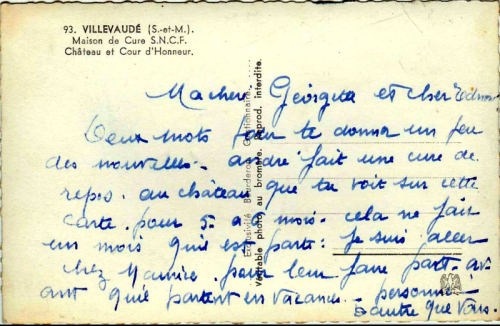 93. VILLEVAUDÉ (S.-et-M.).
Maison de Cure S.N.C.F.
Château et Cour d'Honneur.
Exclusivité Concessionnaire.
Véritable photo au bromure. Reprod. interdite.
Ma chere Georgette et cher Edmon
Deux mots pour te donner un peu
des nouvelles. andré fait une cure de
repos. au château que tu voit sur cette
carte. pour 5. a mois. cela ne fait
un mois qu'il est parti: Je suis aller
chez Maurice. pour leur faire part. av
ant qu'il partent en vacances. personne
d'autre que vous.